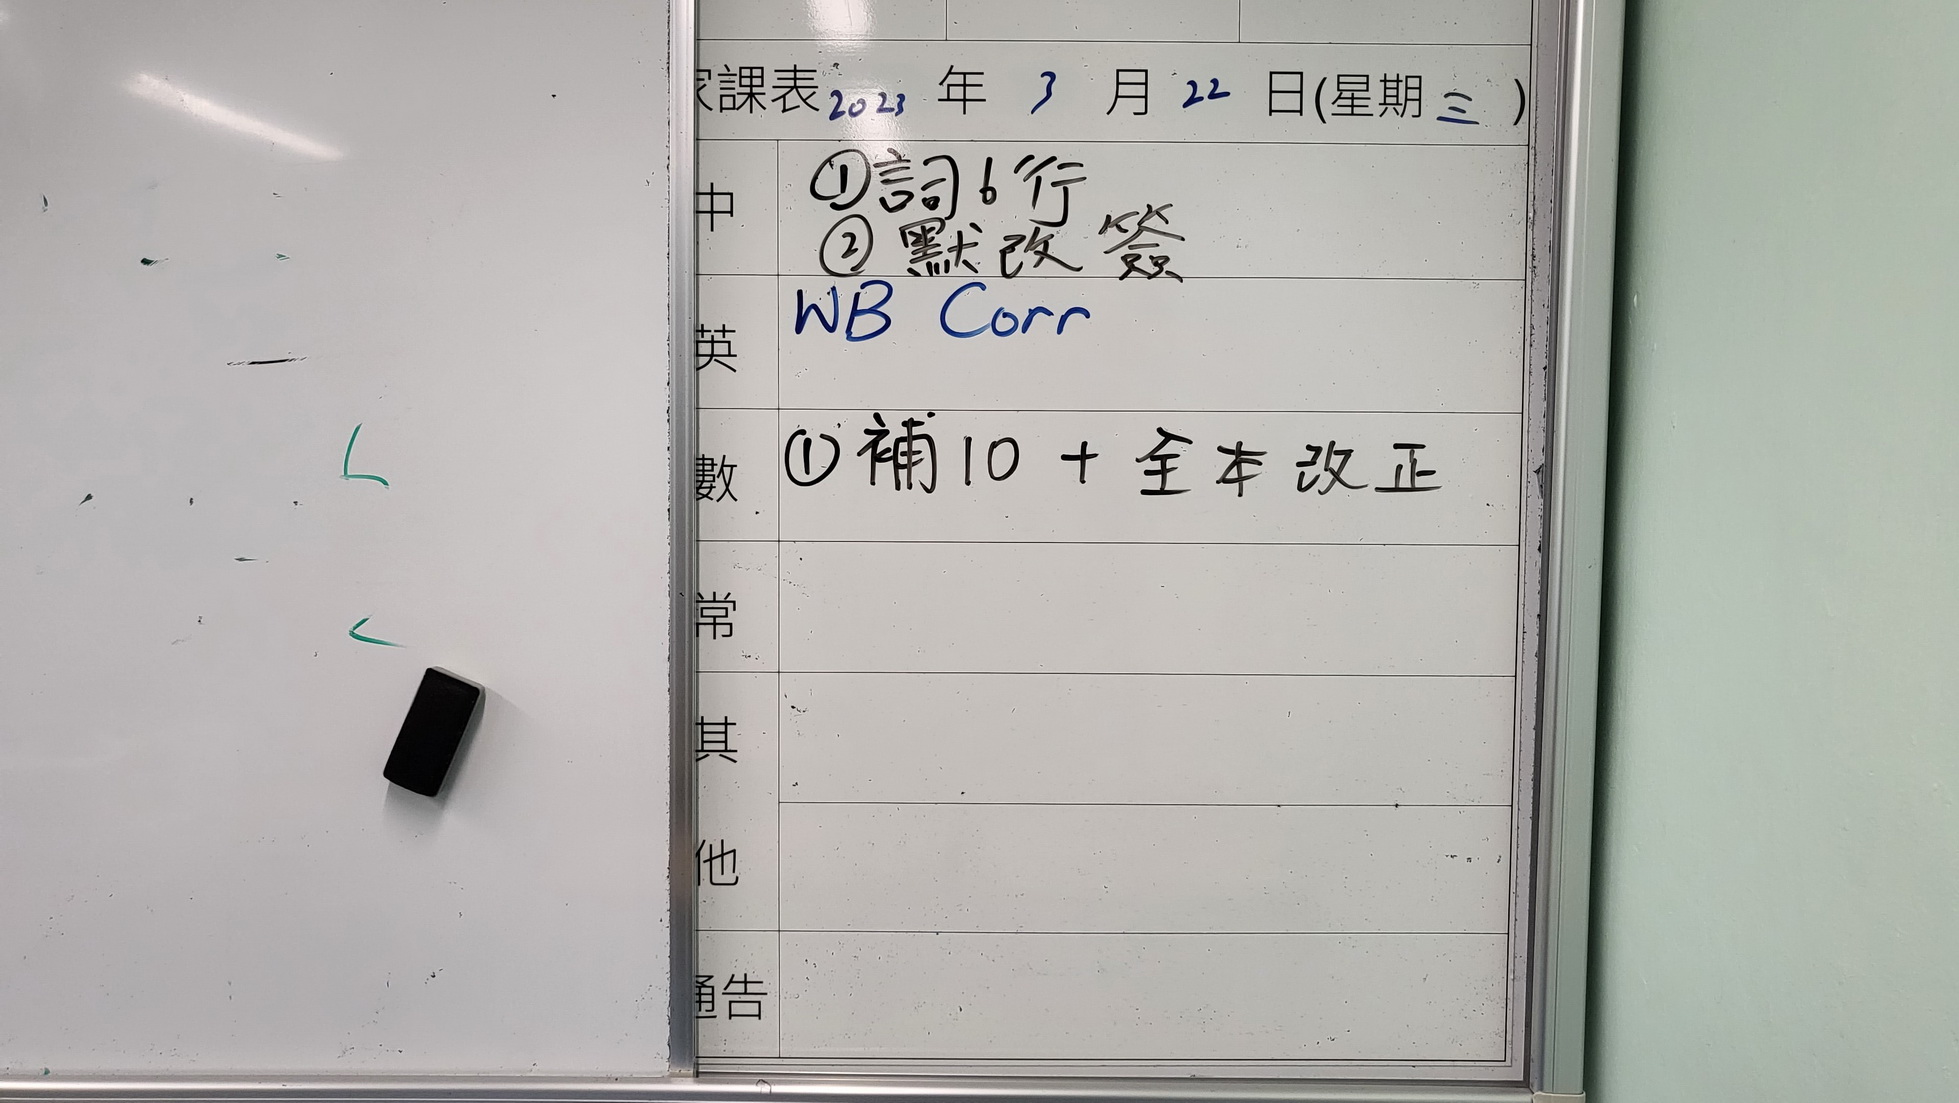 家課表 2023 年 3 月 22 日(星期 三 )
中 ①詞6行
②默改簽
英 WB Corr
數 ①補10 + 全本改正
常
其
他
通告